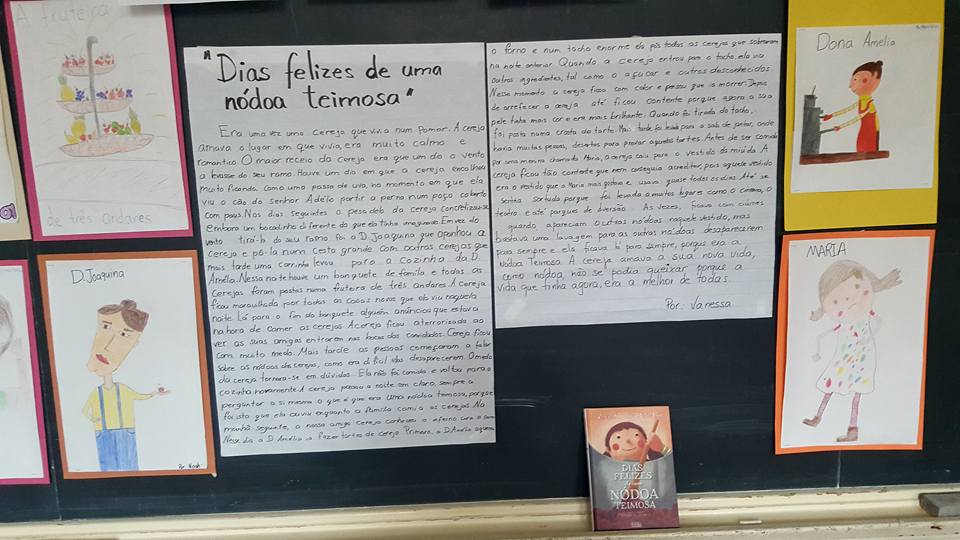 A fruteira
de três andares
D. Joaquina
Por: Noah
"Dias felizes de uma
nódoa teimosa"
Era uma vez uma cereja que vivia num Pomar. A cereja
amava o lugar em que vivia, era muito calmo e
romantico. O maior receio da cereja era que um dia o vento
a levasse do seu ramo. Houve um dia em que a cereja encolheu
muito ficando como uma passa de uva, no momento em que ela
viu o cão do senhor Adélio partir a perna num poço coberto
com paus. Nos dias seguintes o pesadelo da cereja concretizou-se
embora um bocadinho diferente do que ela tinha imaginado. Em vez do
vento tirá-la do seu ramo foi a D. Joaquina que apanhou a
cereja e pô-la num cesto grande com outras cerejas que
mais tarde uma carrinha levou para a cozinha da D.
Amélia. Nessa noite houve um banquete de familia e todas as
cerejas foram postas numa fruteira de três andares. A cereja
ficou maravilhada por todas as coisas novas que ela viu naquela
noite. Lá para o fim do banquete alguém anúnciou que estava
na hora de comer as cerejas. A cereja ficou aterrorizada ao
ver as suas amigas entrarem nas bocas dos convidados. Cereja ficou
com muito medo. Mais tarde as pessoas começaram a falar
sobre as nódoas de cerejas, como era dificil elas desaparecerem. O medo
da cereja tornara-se em dúvidas. Ela não foi comida e voltou para a
cozinha novamente. A cereja passou a noite em claro, sempre a
perguntar a si mesma o que é que era uma nódoa teimosa, porque
foi isto que ela ouviu enquanto a familia comia as cerejas. Na
manhã seguinte, a nossa amiga cereja conheceu o inferno com a
Nesse dia a D. Amélia ia fazer tartes de cereja. Primeiro, a D. Amélia aqueceu
o forno e num tacho enorme ela pôs todas as cerejas que sobraram
na noite anterior. Quando a cereja entrou para o tacho, ela viu
outros ingredientes, tal como o açucar e outros desconhecidos.
Nesse momento a cereja ficou com calor e pensou que ia morrer. Depois
de arrefecer a cereja até ficou contente porque agora a sua
pele tinha mais cor e era mais brilhante. Quando foi tirada do tacho,
foi posta numa crosta da tarte. Mais tarde foi levada para a sala de jantar, onde
haviam muitas pessoas, desertas para provar aquelas tartes. Antes de ser comida
por uma menina chamada Maria, a cereja caiu para o vestido da miúda. A
cereja ficou tão contente que nem conseguia acreditar, pois aquele vestido
era o vestido que a Maria mais gostava e usava quase todos os dias. Até se
sentia sortuda porque foi levada a muitos lugares como o cinema, o
teatro e até parques de diversão. As vezes, ficava com ciúmes
quando apareciam outras nódoas naquele vestido, mas
bastava uma lavagem para as outras nódoas desaparecerem
para sempre e ela ficava lá para sempre, porque era a
Nódoa Teimosa. A cereja amava a sua nova vida,
como nódoa, não se podia queixar porque a
vida que tinha agora, era a melhor de todas.
Por: Vanessa
DIAS
FELIZES
NÓDOA
TEIMOSA
Dona Amelia
MARIA